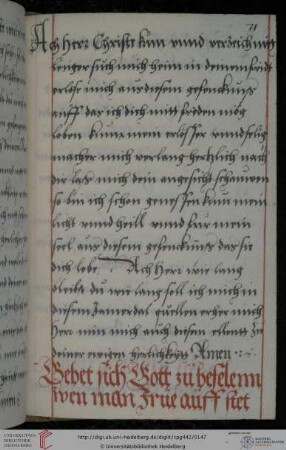 71
Ach Herr Christe kum vnnd verzeich nitt
lenger such mich heim in deinem fridt
erlöse mich aus diesem gefencknus
auff das ich dich mitt frieden mög
loben kum mein erlöser vnnd selig
macher mich verlang hertzlich nach
dir las mich dein angesicht schauwen
so bin ich schon genessen kum mein
licht vnnd heill vnnd fur mein
seel aus diesem gefencknus das sie
dich lobe Ach Herr wie lang
bleibst du wie lang sol ich mich in
diesem Jamerdal quellen
Herr nim mich auch diesen ellentt zu
deiner ewigen herlichkeytt Amen
Gebet sich Gott zu befelenn
wen man frue auff stet
UNIVERSITÄTS-
BIBLIOTHEK
HEIDELBERG
http://digi.ub.uni-heidelberg.de/diglit/cpg442/0147
© Universitätsbibliothek Heidelberg